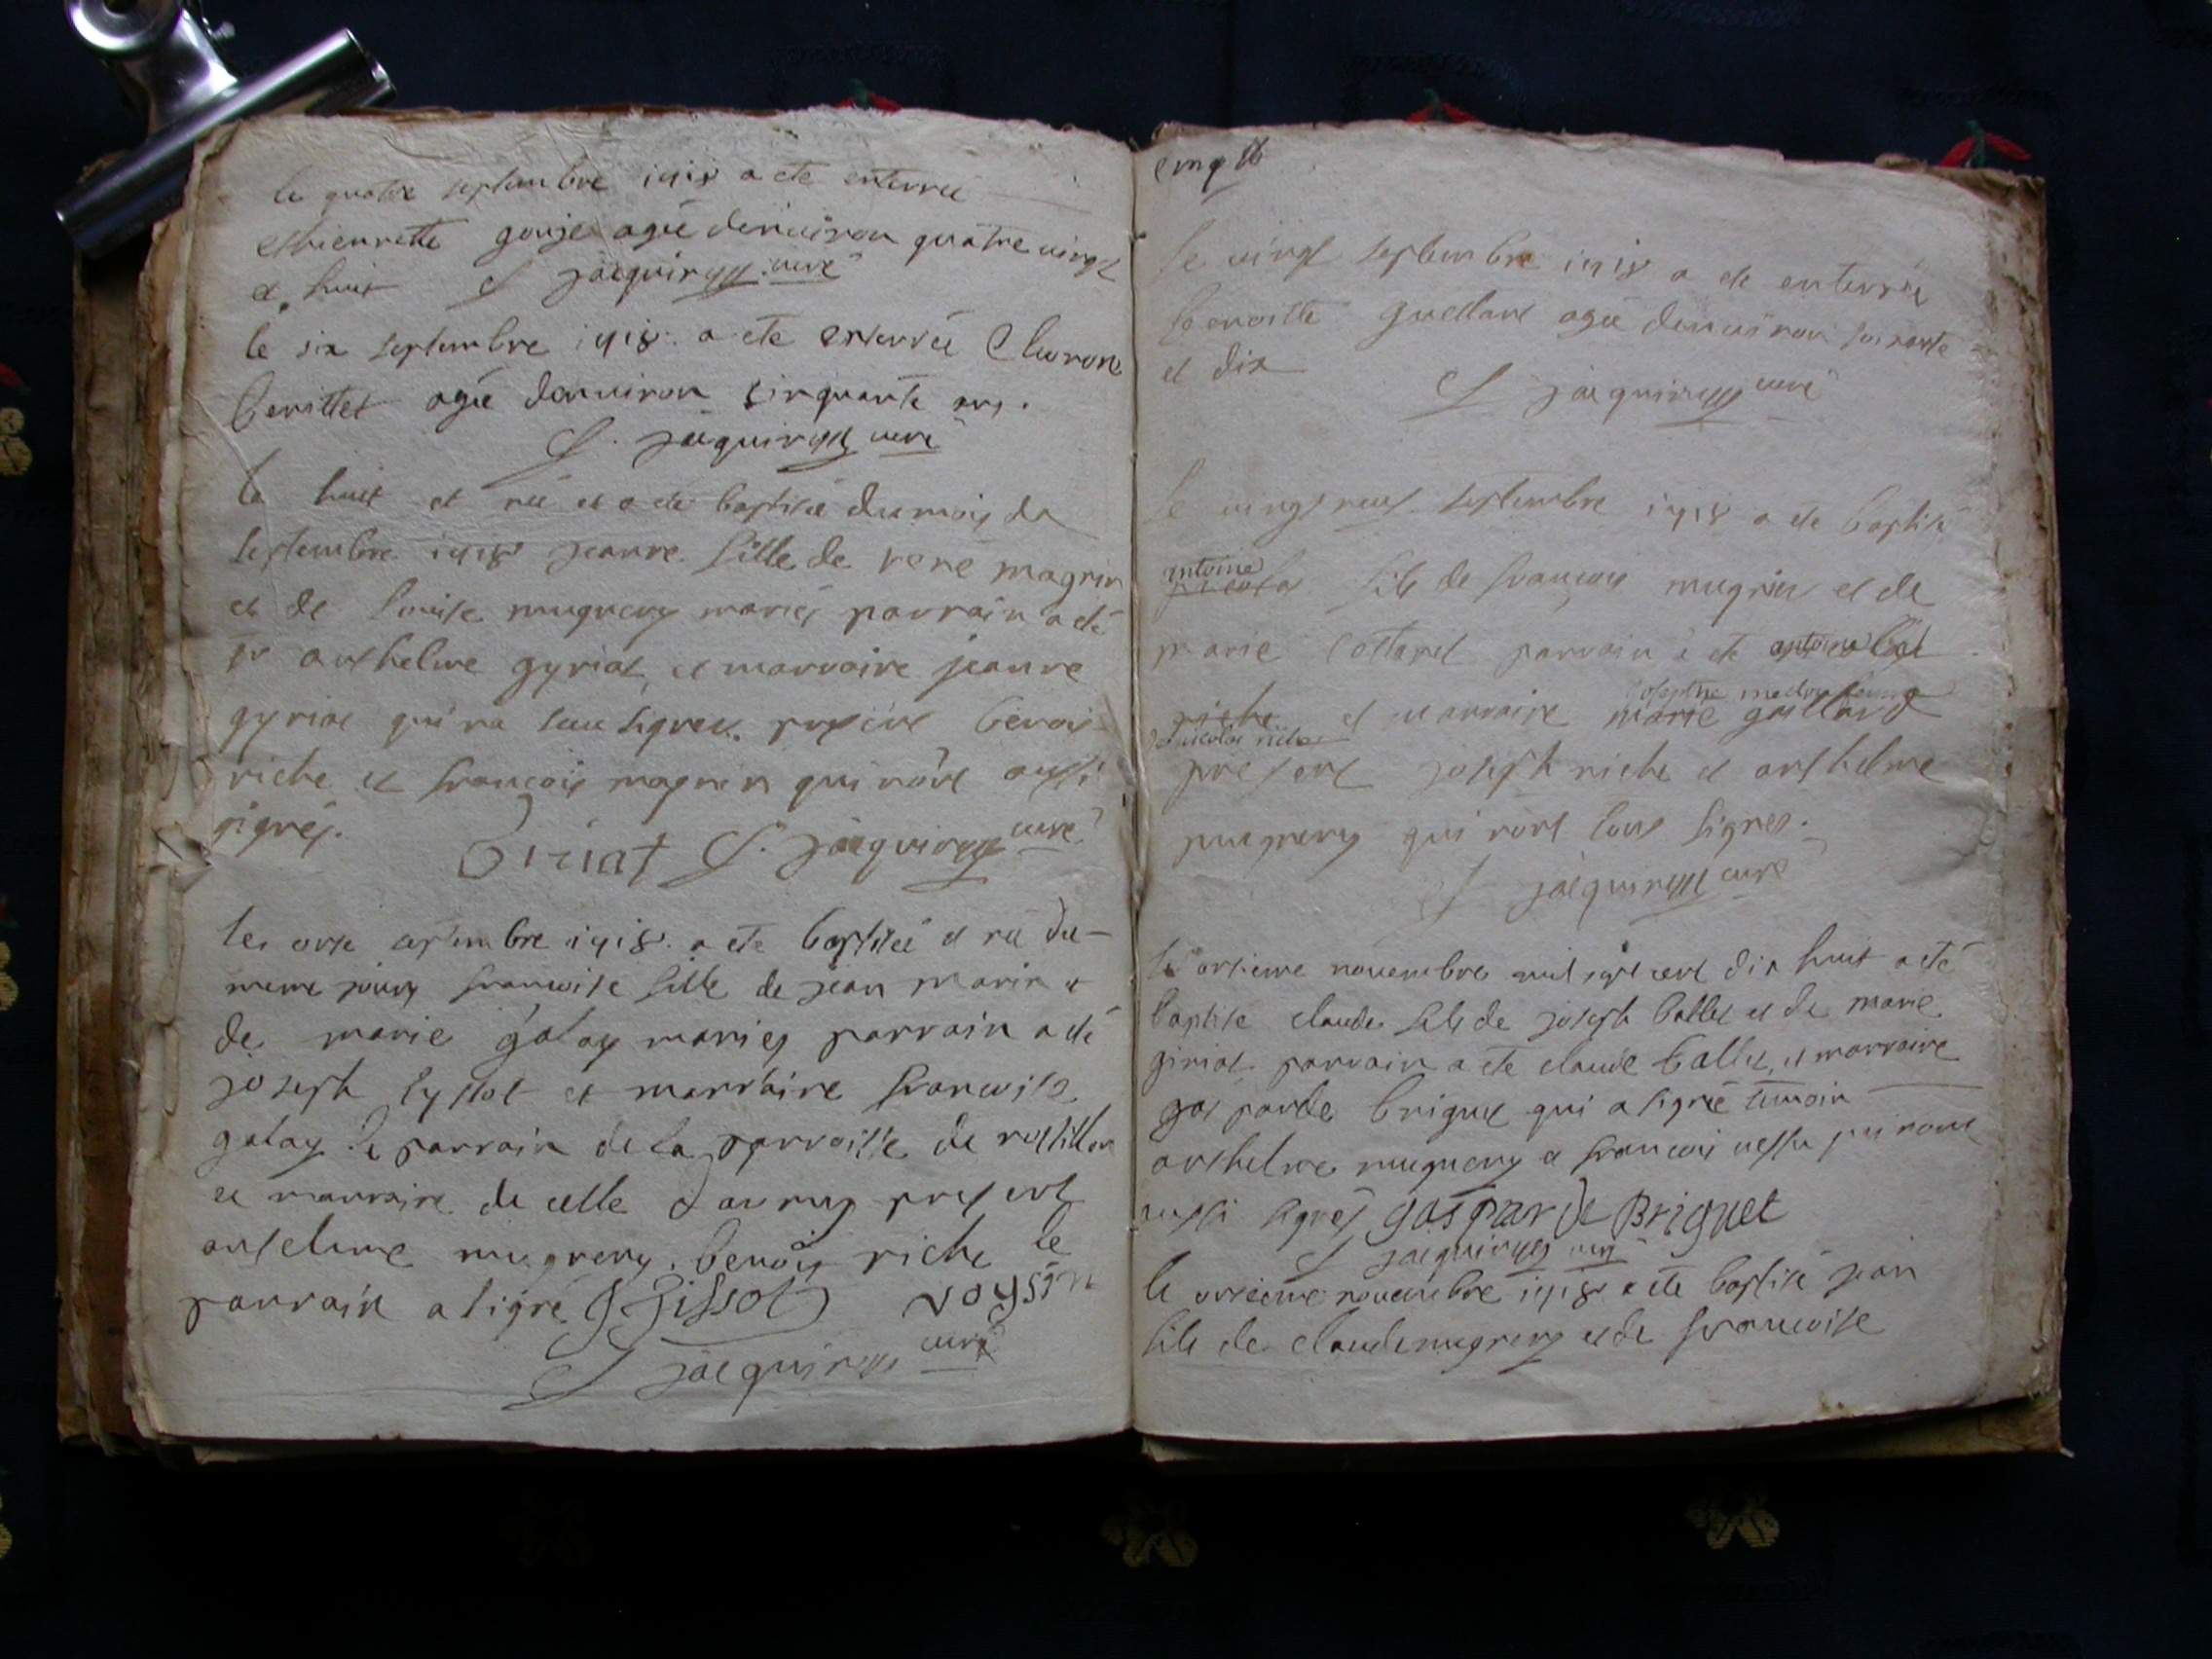 le quatre septembre 1718 a ete enterrée
estiennette gouje agée denuiron quatre uingt
et huit S jacquin curé
le six septembre 1718 a ete enterrée
agée denuiron cinquante ans.
S. jacquin curé
le huit et née et a ete baptisée du mois de
septembre 1718 jeanne fille de rene magnin
et de louise mugnery mariés parrain a eté
sr anthelme gyriat et marraine jeanne
gyriat qui na sceu signer. present benoit
riche et françois magnin qui nont aussi
signés.
Giriat S. jacquin curé
le onse septembre 1718 a ete baptisée et née du
meme jour francoise fille de jean marin et
de marie galay mariés parrain a eté
joseph tyssot et marraine francoise
galay le parrain de la parroisse de rossillon
et marraine de celle present
anselme mugnery benoit riche le
parrain a signé J Tissot voysin
S jacquin curé
le uingt septembre 1718 a ete enterrée
benoitte agée denuiron soixante
et dix
S jacquin curé
le uingt neuf septembre 1718 a ete baptisé
antoine
nicolas fils de françois mugnier et de
marie cottaret parrain a ete antoine
josepthe
riche et marraine marie gaillard
nicolas riche
present joseph riche et anthelme
mugnery qui nont tous signes.
S jacquin curé
le onsieme nouembre mil sept cent dix huit a eté
baptise claude fils de joseph ballet et de marie
giriat parrain a ete claude ballet et marraine
gasparde briguet qui a signé temoin
anthelme mugnery et francois qui nont
aussi signés gasparde Briguet
S jacquin curé
le onsieme nouembre 1718 a ete baptisé jean
fils de claude mugnery et de francoise